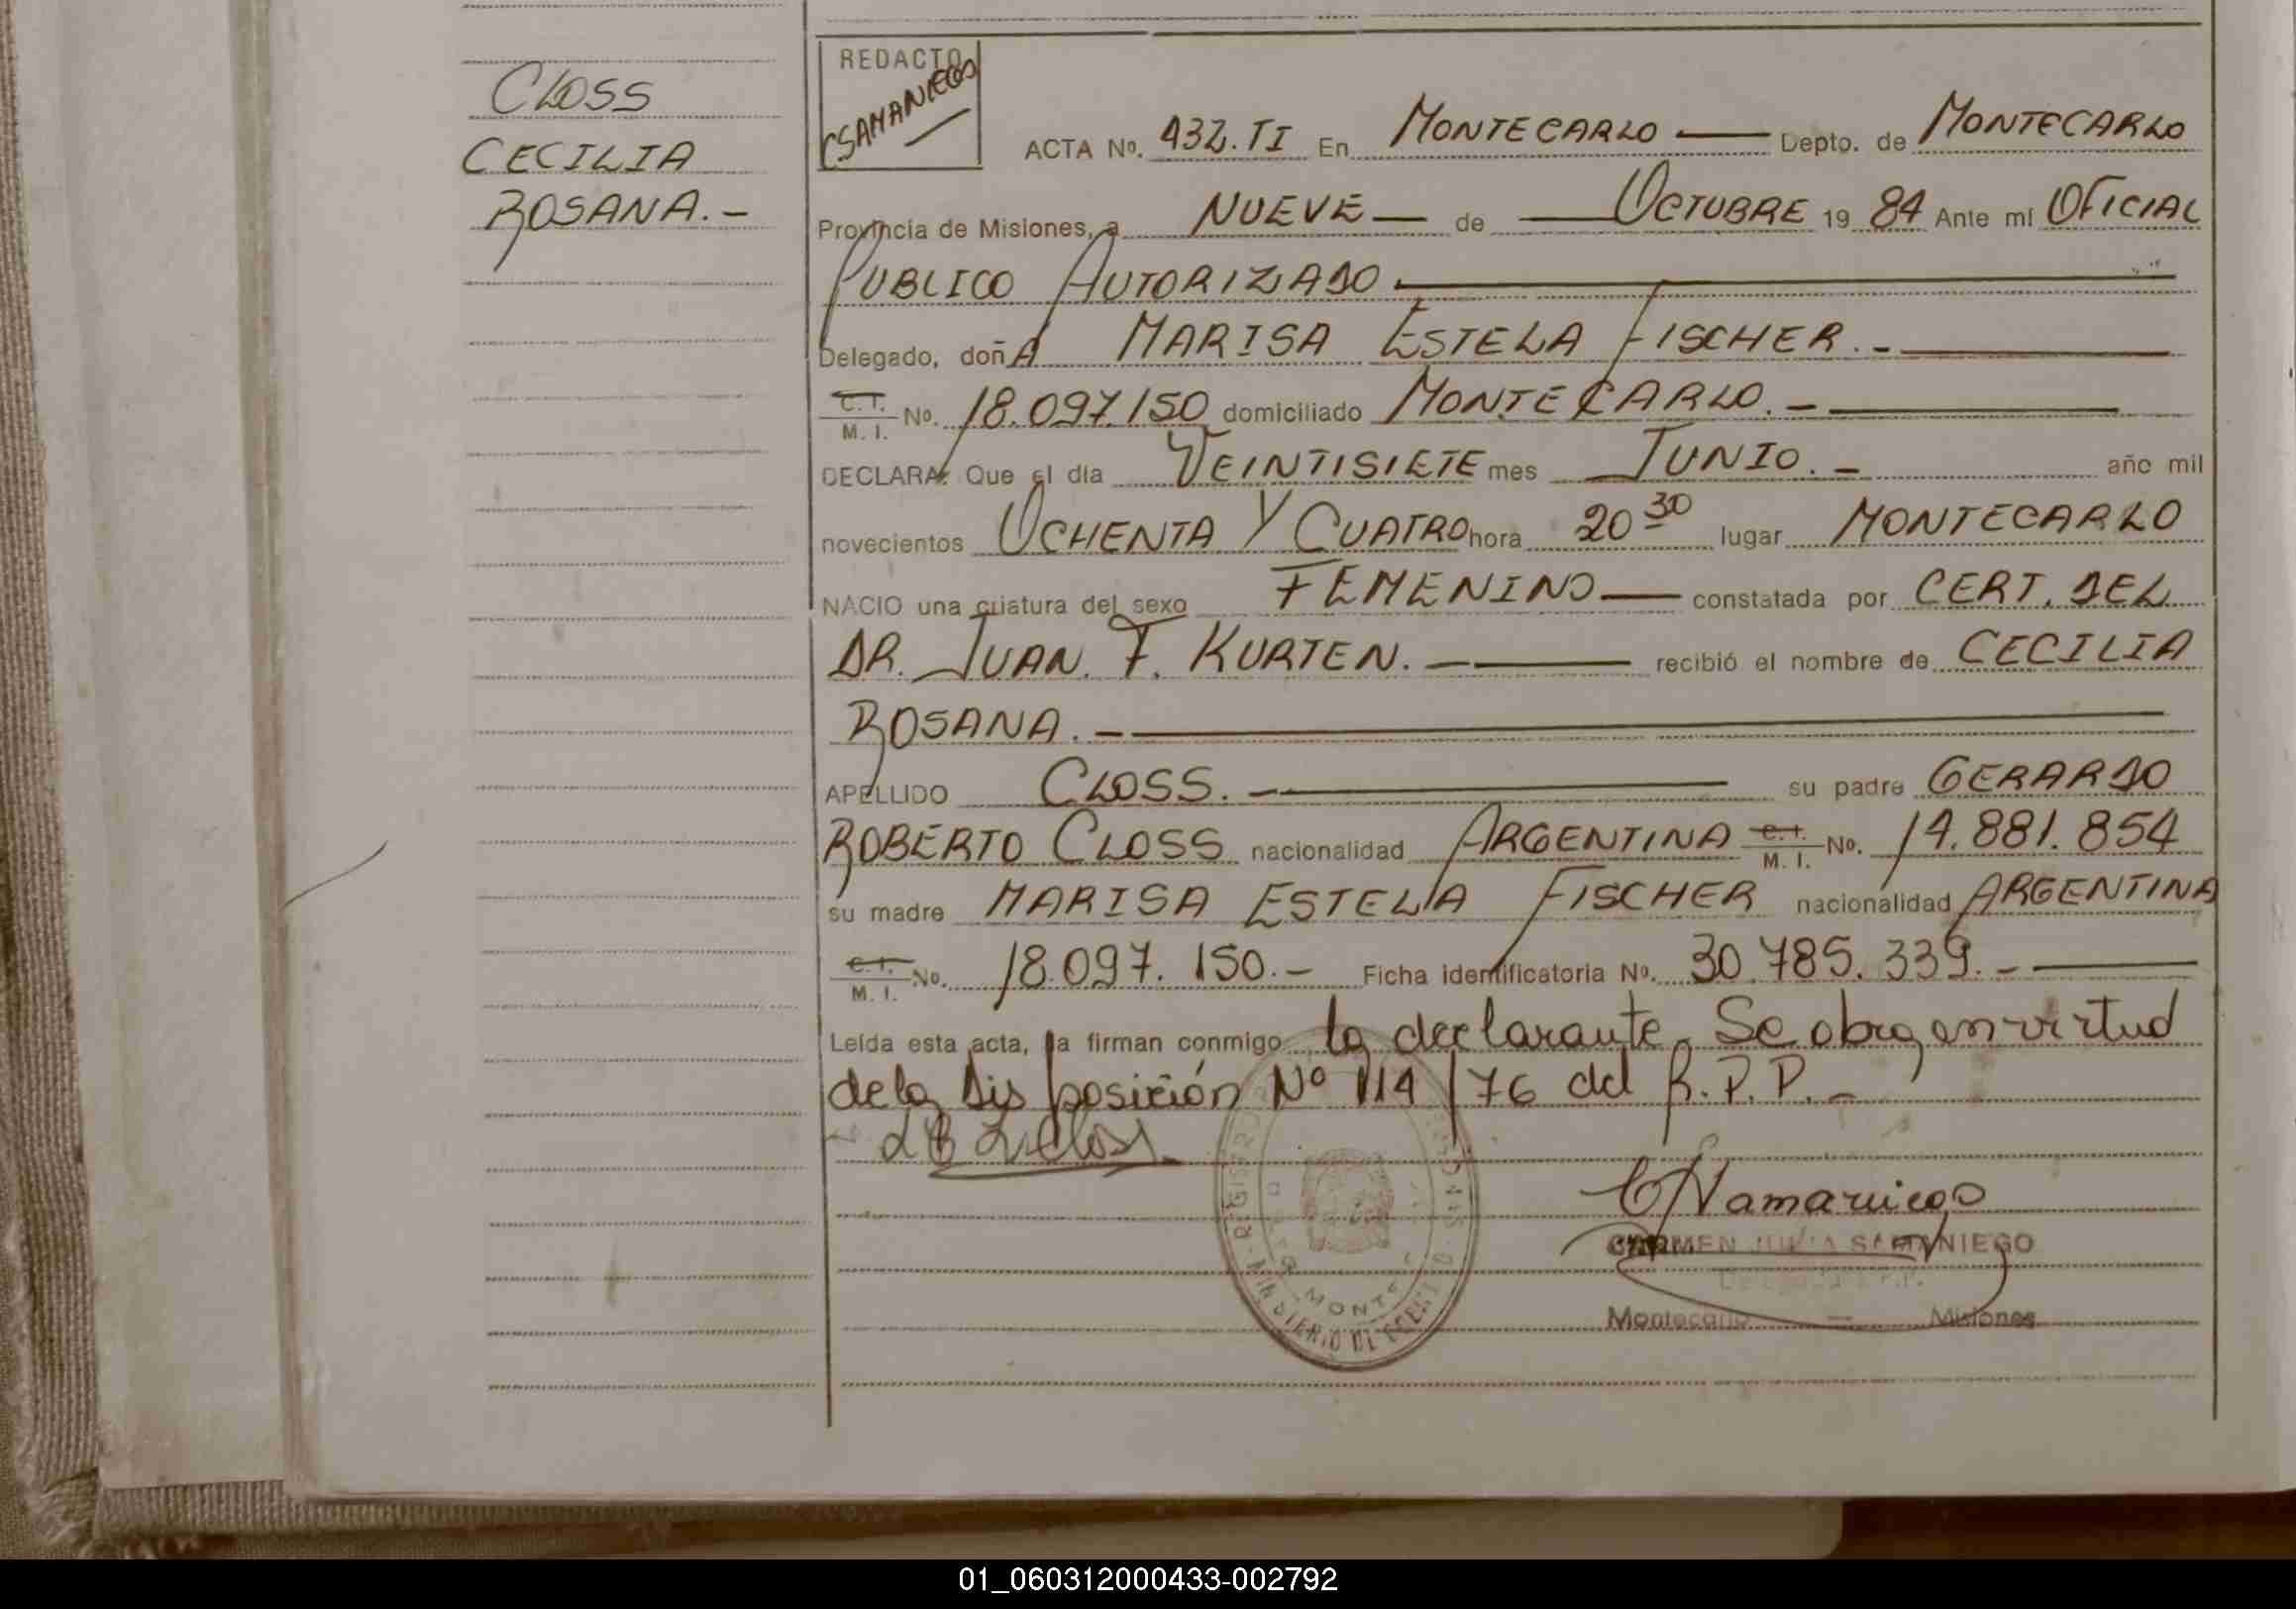 CLOSS
CECILIA
ROSANA.-
REDACTO
CSAMANIEGO
ACTA No. 432.TI En MONTECARLO — Depto. de MONTECARLO
Provincia de Misiones, a NUEVE — de — OCTUBRE 19 84 Ante mí OFICIAL
PUBLICO AUTORIZADO —
Delegado, doñA MARISA ESTELA FISCHER.- —
C.I. M. I. No. 18.097.150 domiciliado MONTECARLO.- —
DECLARA: Que el día VEINTISIETE mes JUNIO.- año mil
novecientos OCHENTA Y CUATRO hora 20 30 lugar MONTECARLO
NACIO una criatura del sexo FEMENINO — constatada por CERT. DEL
DR. JUAN. F. KURTEN.- — recibió el nombre de CECILIA
ROSANA.- —
APELLIDO CLOSS.- — su padre GERARDO
ROBERTO CLOSS nacionalidad ARGENTINA C.I. M. I. No. 14.881.854
su madre MARISA ESTELA FISCHER nacionalidad ARGENTINA
C.I. M. I. No. 18.097.150.- Ficha identificatoria No. 30.785.339.- —
Leída esta acta, la firman conmigo la declarante. Se obra en virtud
de la Disposición Nº 114/76 del R.P.P.-
CSamaniego
CARMEN JULIA SAMANIEGO
Montecarlo — Misiones
MONTE
01_060312000433-002792